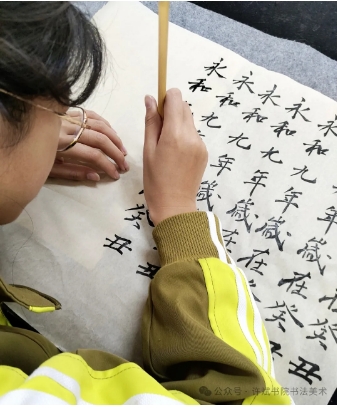 癸丑
年歲在癸丑
永和九年歲在癸
永和九年歲在
永和九年歲
永和九
永和
丑
癸丑
丑
公众号·书院书法美术